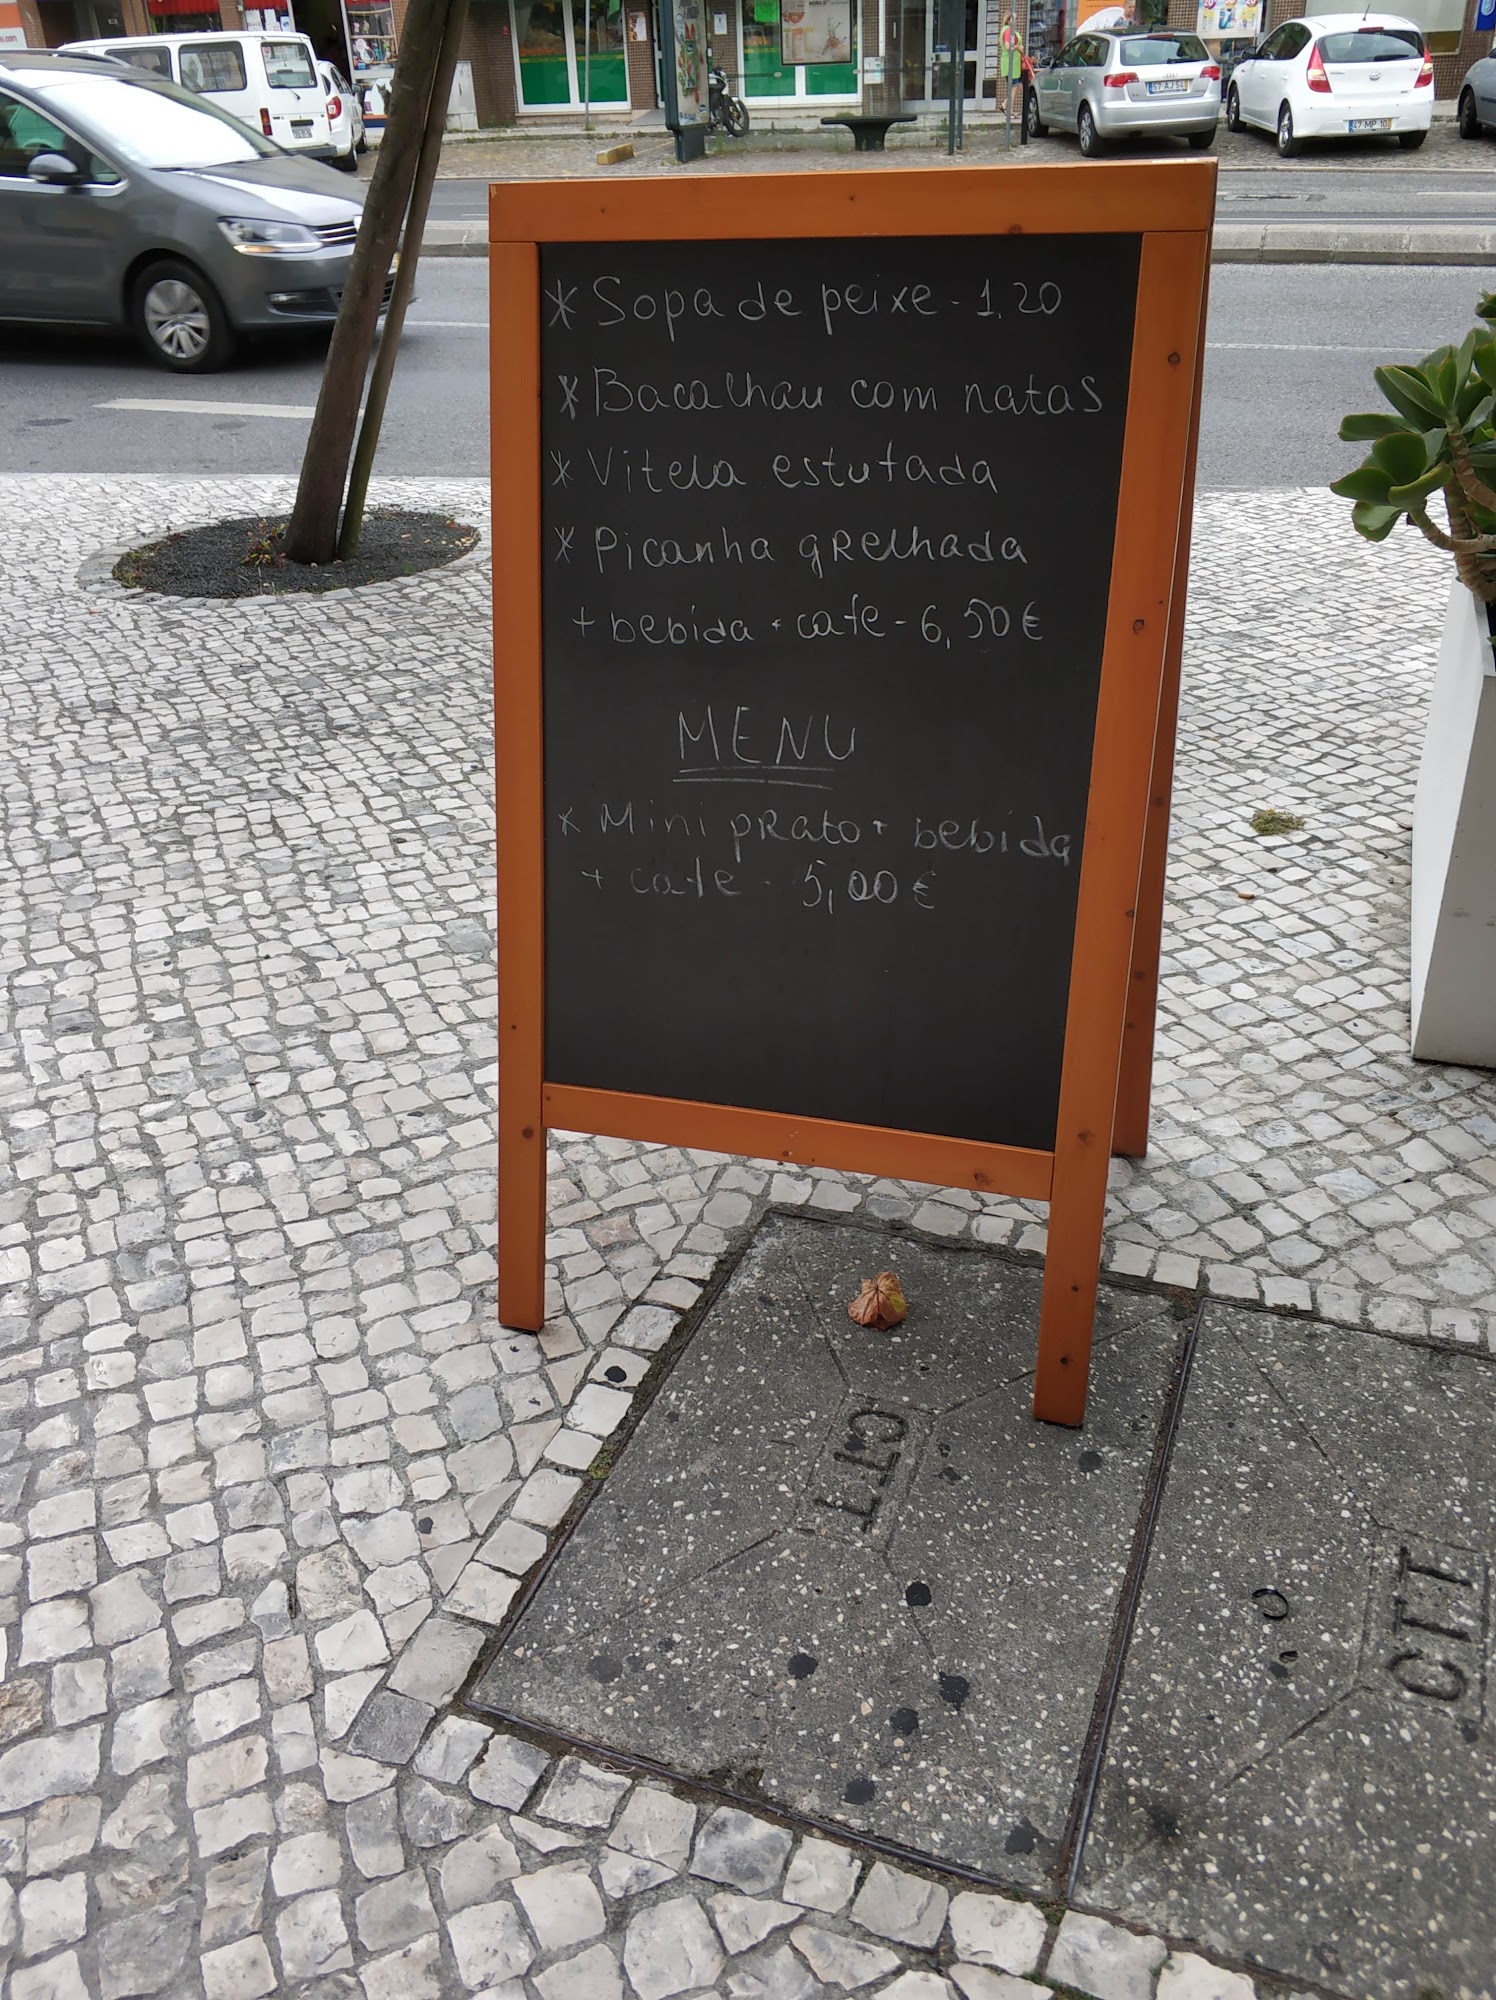 * Sopa de peixe - 1,20
* Bacalhau com natas
* Vitela estufada
* Picanha grelhada
+ bebida + cafe - 6,50€
MENU
* Mini prato + bebida
+ cafe - 5,00€
CTT
CTT
47 MP 10